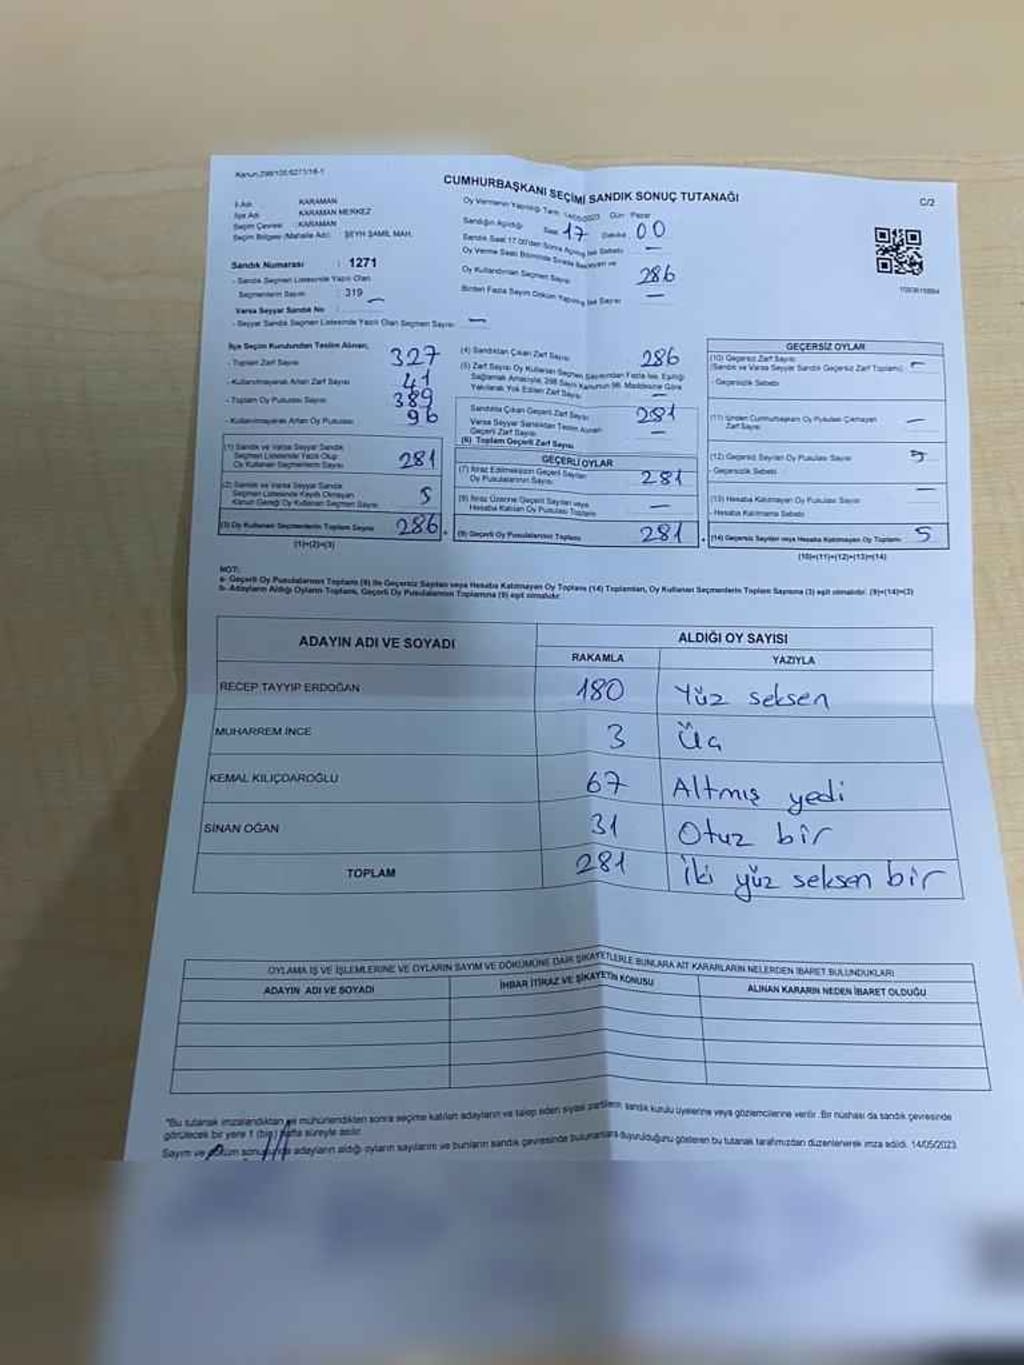 Kanun:298/105/6271/16-1
CUMHURBAŞKANI SEÇİMİ SANDIK SONUÇ TUTANAĞI
C/2
İl Adı : KARAMAN
İlçe Adı : KARAMAN MERKEZ
Seçim Çevresi : KARAMAN
Seçim Bölgesi (Mahalle Adı) : ŞEYH ŞAMİL MAH.
Sandık Numarası : 1271
- Sandık Seçmen Listesinde Yazılı Olan
Seçmenlerin Sayısı : 319
Varsa Seyyar Sandık No —
- Seyyar Sandık Seçmen Listesinde Yazılı Olan Seçmen Sayısı: —
Oy Vermenin Yapıldığı Tarih: 14/05/2023 Gün: Pazar
Sandığın Açıldığı Saat 17 Dakika 00
Sandık Saat 17.00'den Sonra Açılmış İse Sebebi —
Oy Verme Saati Bitiminde Sırada Bekleyen ve
Oy Kullandırılan Seçmen Sayısı 286
Birden Fazla Sayım Döküm Yapılmış İse Sayısı —
İlçe Seçim Kurulundan Teslim Alınan;
- Toplam Zarf Sayısı 327
- Kullanılmayarak Artan Zarf Sayısı 41
- Toplam Oy Pusulası Sayısı 389
- Kullanılmayarak Artan Oy Pusulası 96
(1) Sandık ve Varsa Seyyar Sandık
Seçmen Listesinde Yazılı Olup
Oy Kullanan Seçmenlerin Sayısı 281
(2) Sandık ve Varsa Seyyar Sandık
Seçmen Listesinde Kayıtlı Olmayan
Kanun Gereği Oy Kullanan Seçmen Sayısı 5
(3) Oy Kullanan Seçmenlerin Toplam Sayısı 286
(1)+(2)=(3)
(4) Sandıktan Çıkan Zarf Sayısı 286
(5) Zarf Sayısı Oy Kullanan Seçmen Sayısından Fazla İse, Eşitliği
Sağlamak Amacıyla, 298 Sayılı Kanunun 98. Maddesine Göre
Yakılarak Yok Edilen Zarf Sayısı —
Sandıkta Çıkan Geçerli Zarf Sayısı 281
Varsa Seyyar Sandıktan Teslim Alınan
Geçerli Zarf Sayısı —
(6) Toplam Geçerli Zarf Sayısı
GEÇERLİ OYLAR
(7) İtiraz Edilmeksizin Geçerli Sayılan
Oy Pusulalarının Sayısı 281
(8) İtiraz Üzerine Geçerli Sayılan veya
Hesaba Katılan Oy Pusulası Toplamı —
(9) Geçerli Oy Pusulalarının Toplamı 281
GEÇERSİZ OYLAR
(10) Geçersiz Zarf Sayısı
(Sandık ve Varsa Seyyar Sandık Geçersiz Zarf Toplamı) —
- Geçersizlik Sebebi
(11) İçinden Cumhurbaşkanı Oy Pusulası Çıkmayan
Zarf Sayısı —
(12) Geçersiz Sayılan Oy Pusulası Sayısı 5
- Geçersizlik Sebebi
(13) Hesaba Katılmayan Oy Pusulası Sayısı —
- Hesaba Katılmama Sebebi
(14) Geçersiz Sayılan veya Hesaba Katılmayan Oy Toplamı 5
(10)+(11)+(12)+(13)=(14)
NOT:
a- Geçerli Oy Pusulalarının Toplamı (9) ile Geçersiz Sayılan veya Hesaba Katılmayan Oy Toplamı (14) Toplamları, Oy Kullanan Seçmenlerin Toplam Sayısına (3) eşit olmalıdır. (9)+(14)=(3)
b- Adayların Aldığı Oyların Toplamı, Geçerli Oy Pusulalarının Toplamına (9) eşit olmalıdır.
ADAYIN ADI VE SOYADI ALDIĞI OY SAYISI
RAKAMLA YAZIYLA
RECEP TAYYİP ERDOĞAN 180 Yüz seksen
MUHARREM İNCE 3 Üç
KEMAL KILIÇDAROĞLU 67 Altmış yedi
SİNAN OĞAN 31 Otuz bir
TOPLAM 281 İki yüz seksen bir
OYLAMA İŞ VE İŞLEMLERİNE VE OYLARIN SAYIM VE DÖKÜMÜNE DAİR ŞİKAYETLERLE BUNLARA AİT KARARLARIN NELERDEN İBARET BULUNDUKLARI
ADAYIN ADI VE SOYADI İHBAR İTİRAZ VE ŞİKAYETİN KONUSU ALINAN KARARIN NEDEN İBARET OLDUĞU
"Bu tutanak imzalandıktan ve mühürlendikten sonra seçime katılan adayların ve talep eden siyasi partilerin sandık kurulu üyelerine veya gözlemcilerine verilir. Bir nüshası da sandık çevresinde
görülecek bir yere 1 (bir) hafta süreyle asılır.
Sayım ve döküm sonucunda adayların aldığı oyların sayılarını ve bunların sandık çevresinde bulunanlara duyurulduğunu gösteren bu tutanak tarafımızdan düzenlenerek imza edildi. 14/05/2023